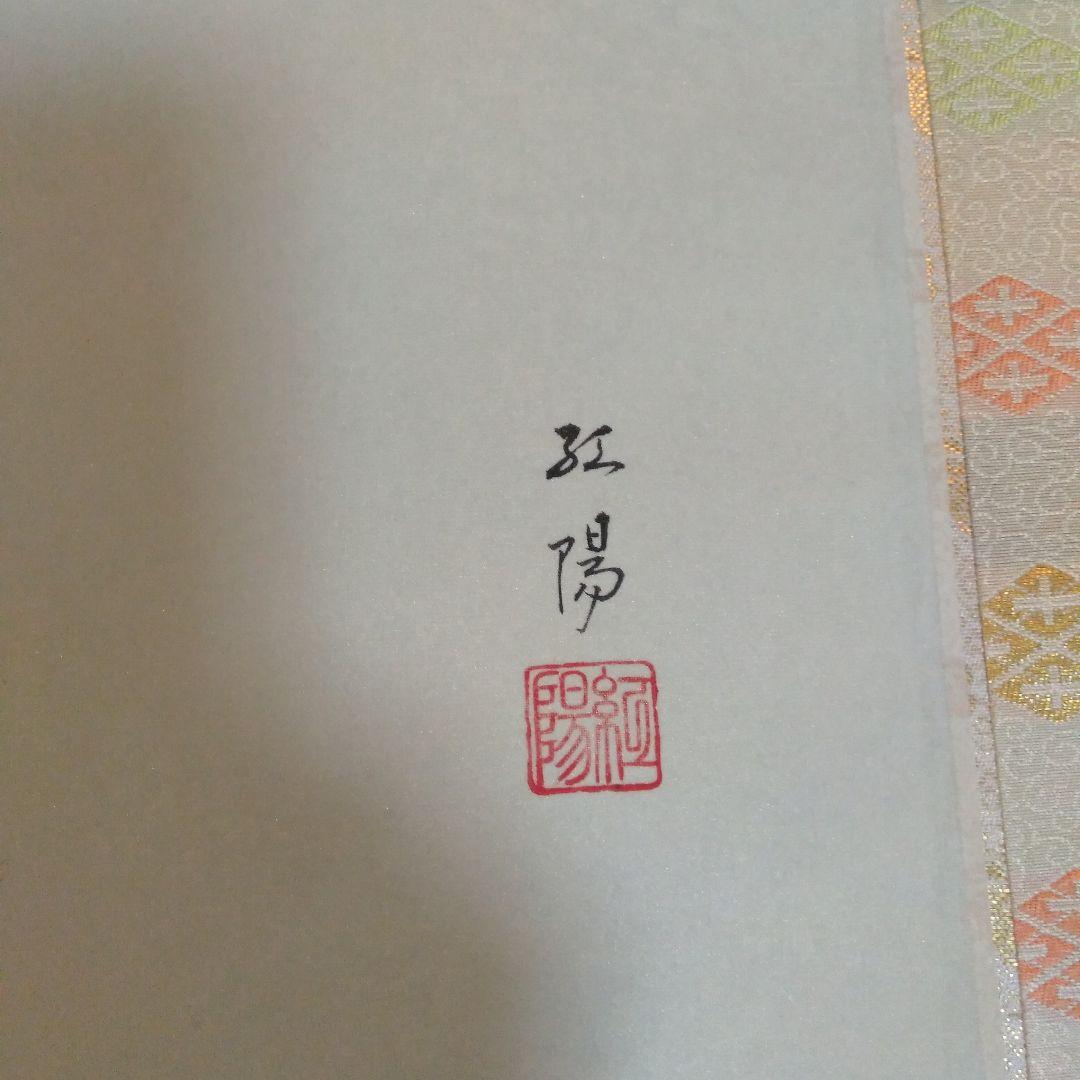 紅陽
紅陽